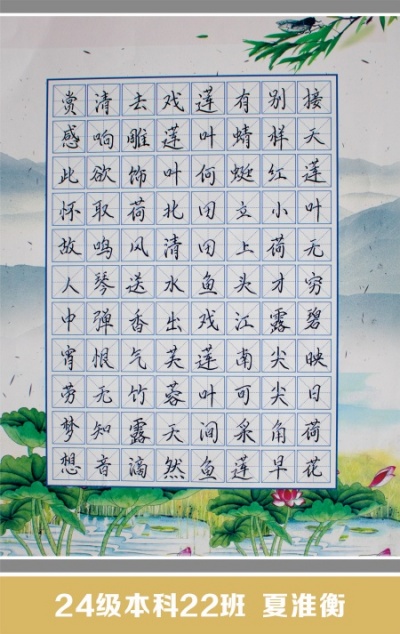 接天莲叶无穷碧映日荷花
别样红小荷才露尖尖角早
有蜻蜓立上头江南可采莲
莲叶何田田鱼戏莲叶间鱼
戏莲叶北清水出芙蓉天然
去雕饰荷风送香气竹露滴
清响欲取鸣琴弹恨无知音
赏感此怀故人中宵劳梦想
24级本科22班 夏淮衡